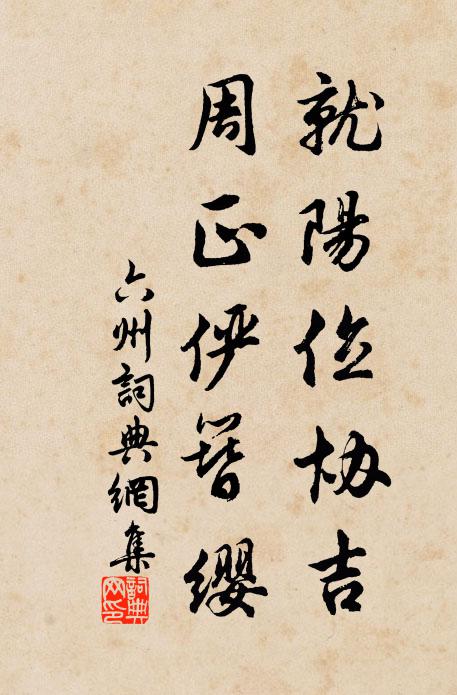 就陽位協吉
周正俨簪纓
六州詞典網集
詞典网印